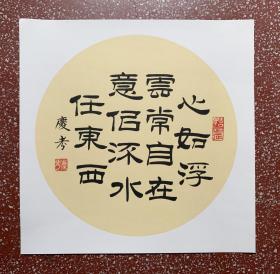 心如浮
雲常自在
意侣添水
任東西
慶考